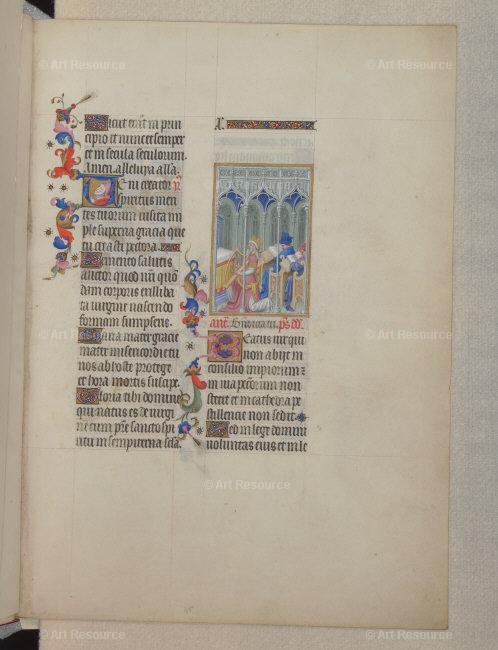 Sicut erat in prin
cipio et nunc et semper
et in secula seculorum.
Amen. alleluya alla.
Veni creator
spiritus men
tes tuorum visita im
ple superna gracia que
tu creasti pectora.
Memento salutis
auctor quod nri quō
dam corporis ex illiba
ta virgine nascendo
formam sumpseris.
Maria mater gracie
mater misericordie tu
nos ab hoste protege
et hora mortis suscipe.
Gloria tibi domine
qui natus es de virgi
ne cum pre sancto spu
ritu in sempiterna scla.
ant. Benedicta tu. ps. dd.
Beatus vir qui
non abijt in
consilio impiorum
in via peccorum non
stetit et in cathedra pe
stilencie non sedit.
Sed in lege domini
voluntas eius et in le
© Art Resource
© Art Resource
© Art Resource
© Art Resource
© Art Resource
© Art Resource
© Art Resource
© Art Resource